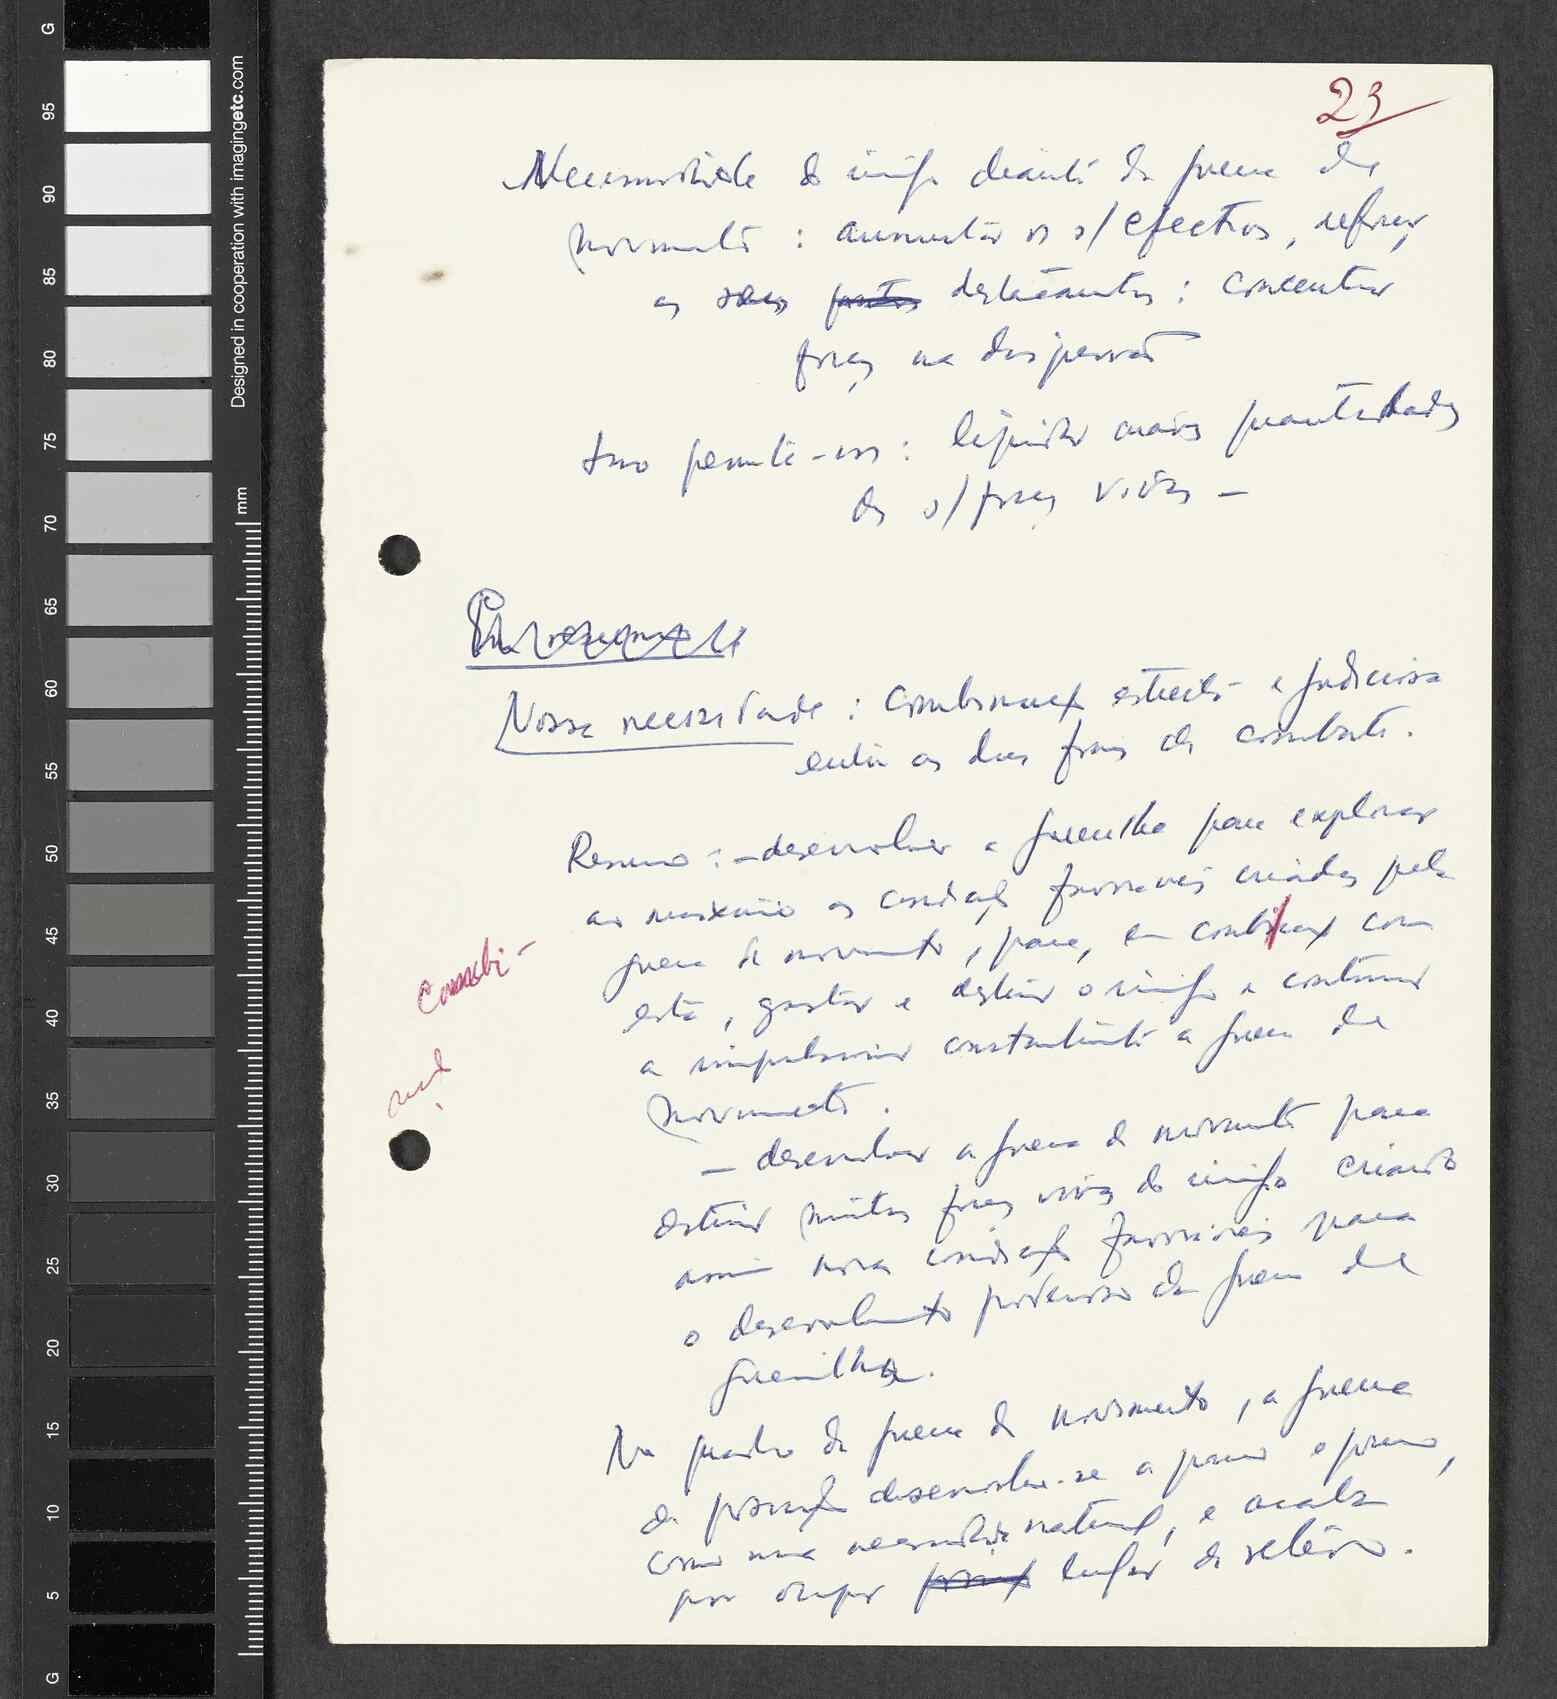 G
95
90
85
80
75
70
65
60
55
50
45
40
35
30
25
20
15
10
5
G
Designed in cooperation with imagingetc.com
mm
23
Necessidade do inimigo diante da guerra de
movimento : aumentar os s/ efectivos, reforçar
os seus postos destacamentos : concentrar
forças na dispersão
Isso permite-nos : liquidar mais quantidades
de s/ forças vivas –
Nossa necessidade : combinação estreita e judiciosa
entre as duas formas de combate.
Resumo : – desenvolver a guerrilha para explorar
ao máximo as condições favoráveis criadas pela
guerra de movimento, para, em combinação com
esta, gastar e destruir o inimigo e continuar
a impulsionar constantemente a guerra de
movimento.
Combi-
nação
– desenvolver a guerra de movimento para
destruir muitas forças vivas do inimigo criando
assim novas condições favoráveis para
o desenvolvimento da guerra de
guerrilha.
No quadro da guerra de movimento, a guerra
de posição desenvolve-se a pouco e pouco,
como uma necessidade natural, e acaba
por ocupar lugar de relevo.